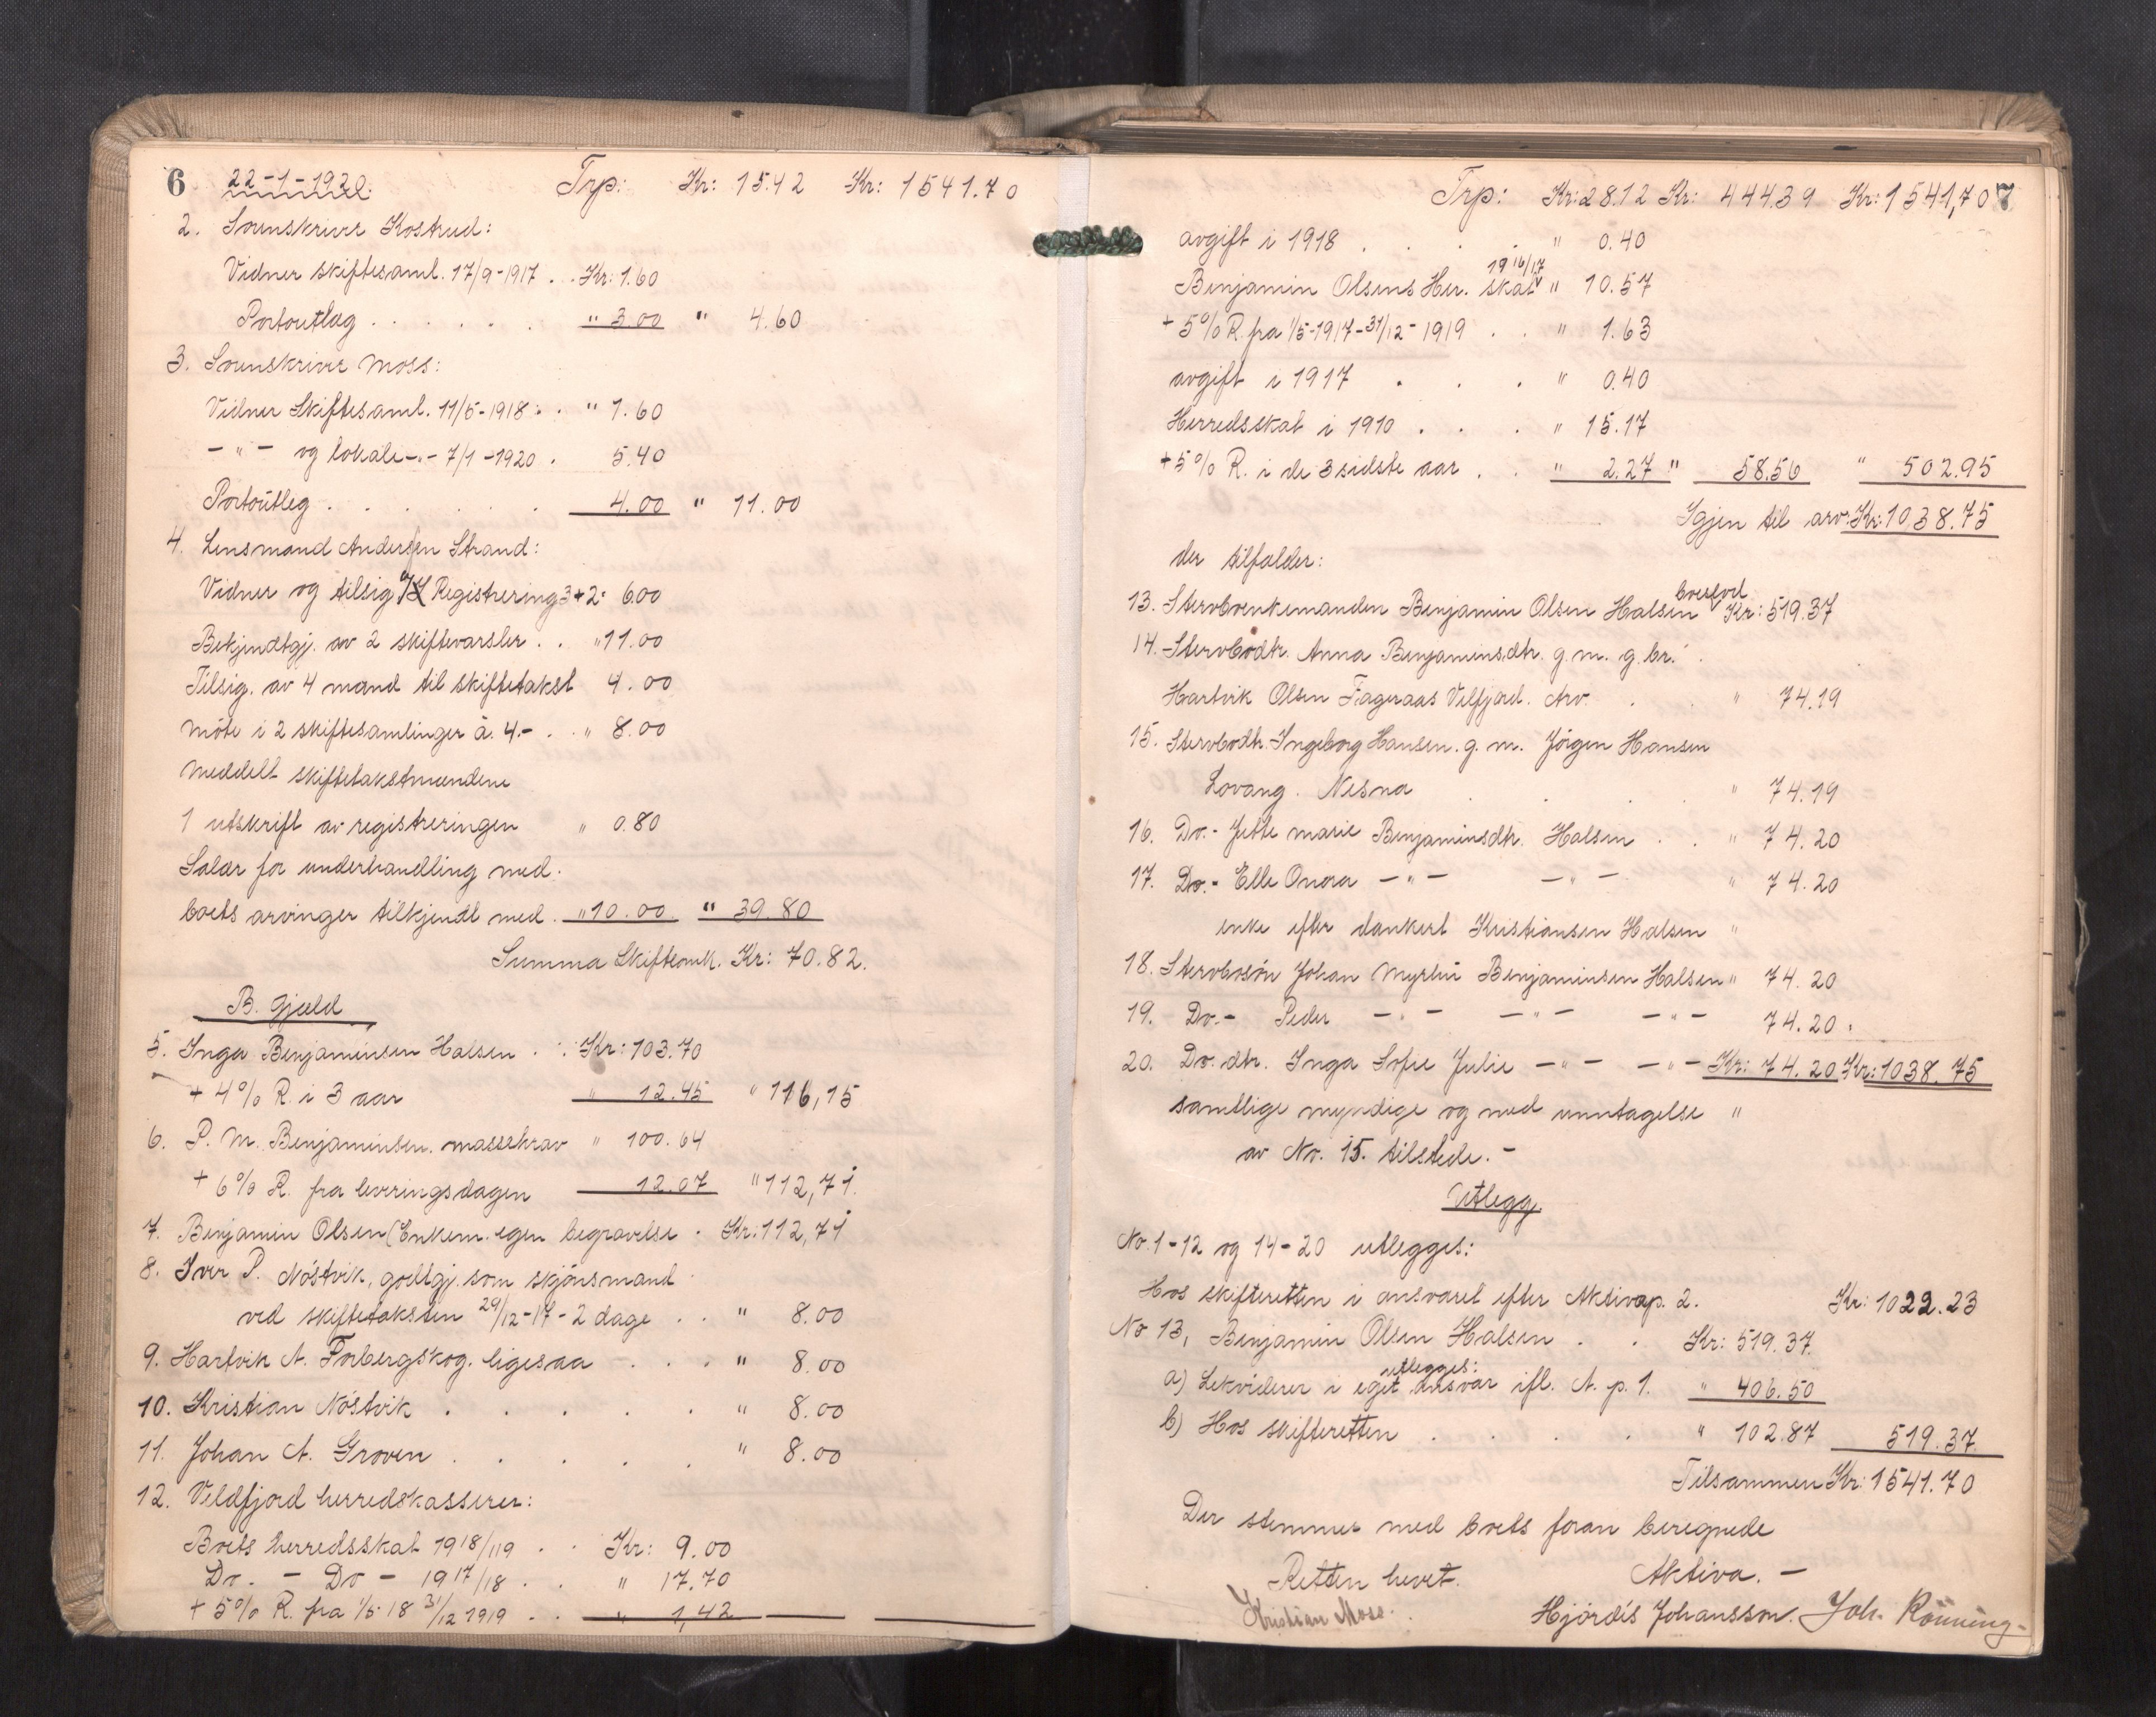 6 22-1-1920. Trp: Kr: 15.42 Kr: 1541.70
2. Sorenskriver Kostrud:
Vidner skiftesaml. 17/9-1917 . . Kr: 1.60
Portoutlæg . . . . . . " 3.00 " 4.60
3. Sorenskriver Moss:
Vidner Skiftesaml. 11/5-1918 . . " 1.60
- " - og lokale - " - 7/1-1920 . 5.40
Portoutleg . . . . . . 4.00 " 11.00
4. Lensmand Andersen Strand:
Vidner og tilsig. Registrering 3+2= 6.00
Bekjendtgj. av 2 skiftevarsler . . " 11.00
Tilsig. av 4 mand til skiftetakst 4.00
Möte i 2 skiftesamlinger à. 4.- . . " 8.00
Meddelt skiftetakstmændene
1 utskrift av registreringen " 0.80
Salær for underhandling med.
boets arvinger tilkjendt med . " 10.00 " 39.80
Summa Skifteomk. Kr: 70.82.
B. Gjæld
5. Inga Benjaminsen Halsen . . Kr: 103.70
+ 4% R. i 3 aar " 12.45 " 116,15
6. P. M. Benjaminsen. massekrav " 100.64
+ 6% R. fra leveringsdagen 12.07 " 112,71.
7. Benjamin Olsen (Enkem. egen begravelse . Kr: 112,71
8. Iver P. Nöstvik, godtgj. som skjönsmand
ved skiftetaksten 29/12-17 - 2 dage . . " 8.00
9. Hartvik A. Forbergskog. ligesaa . . . " 8.00
10. Kristian Nöstvik . . . . . " 8.00
11. Johan A. Groven . . . . . " 8.00
12. Veldfjord herredskasserer:
Boets herredsskat 1918/19 . . Kr: 9.00
Do. - Do - 1917/18 . . " 17.70
+ 5% R. fra 1/5 18 31/12 1919 . . " 1,42
Trp: Kr: 28.12 Kr: 444.39 Kr: 1541,70 7
avgift i 1918 . . . . " 0.40
Benjamin Olsens Her. skat 1916/17 " 10.57
+ 5% R. fra 1/5-1917-31/12-1919 . . " 1.63
avgift i 1917 . . . " 0.40
Herredsskat i 1910 . . . " 15.17
+ 5% R. i de 3 sidste aar . . " 2.27 " 58.56 " 502.95
Igjen til arv: Kr: 1038.75
der tilfalder:
13. Stervboenkemanden Benjamin Olsen Halsen boeslod Kr: 519.37
14. Stervbodtr. Anna Benjaminsdtr. g. m. g. br.
Hartvik Olsen Fageraas Velfjord. Arv. . . " 74.19
15. Stervbodtr. Ingeborg Hansen. g. m. Jörgen Hansen
Lovang. Nesna . . . . " 74.19
16. Do.- Jette Marie Benjaminsdtr. Halsen . . " 74.20
17. Do.- Elle Onora - " - - " - " 74.20
enke efter Dankert Kristiansen Halsen "
18. Stervbosön Johan Myrlin Benjaminsen Halsen " 74.20
19. Do.- Peder - " - - " - - " - 74.20.
20. Do. dtr. Inga Sofie Julie - " - - " - Kr: 74.20 Kr: 1038.75
samtlige myndige og med unntagelse "
av No. 15. tilstede. -
Utlegg.
No. 1-12 og 14-20 utlegges:
Hos skifteretten i ansvaret efter Aktivap. 2. Kr: 1022.23
No 13, Benjamin Olsen Halsen . . Kr: 519.37.
a) Lekviderer i eget utlegges: ansvar ifl. A. p. 1. " 406.50
b) Hos skifteretten . . . . " 102.87 519.37
Tilsammen Kr: 1541.70
Der stemmer med boets foran beregnede
Retten hevet. Aktiva. -
Kristian Moss. Hjördis Johansson. Joh. Rönning-